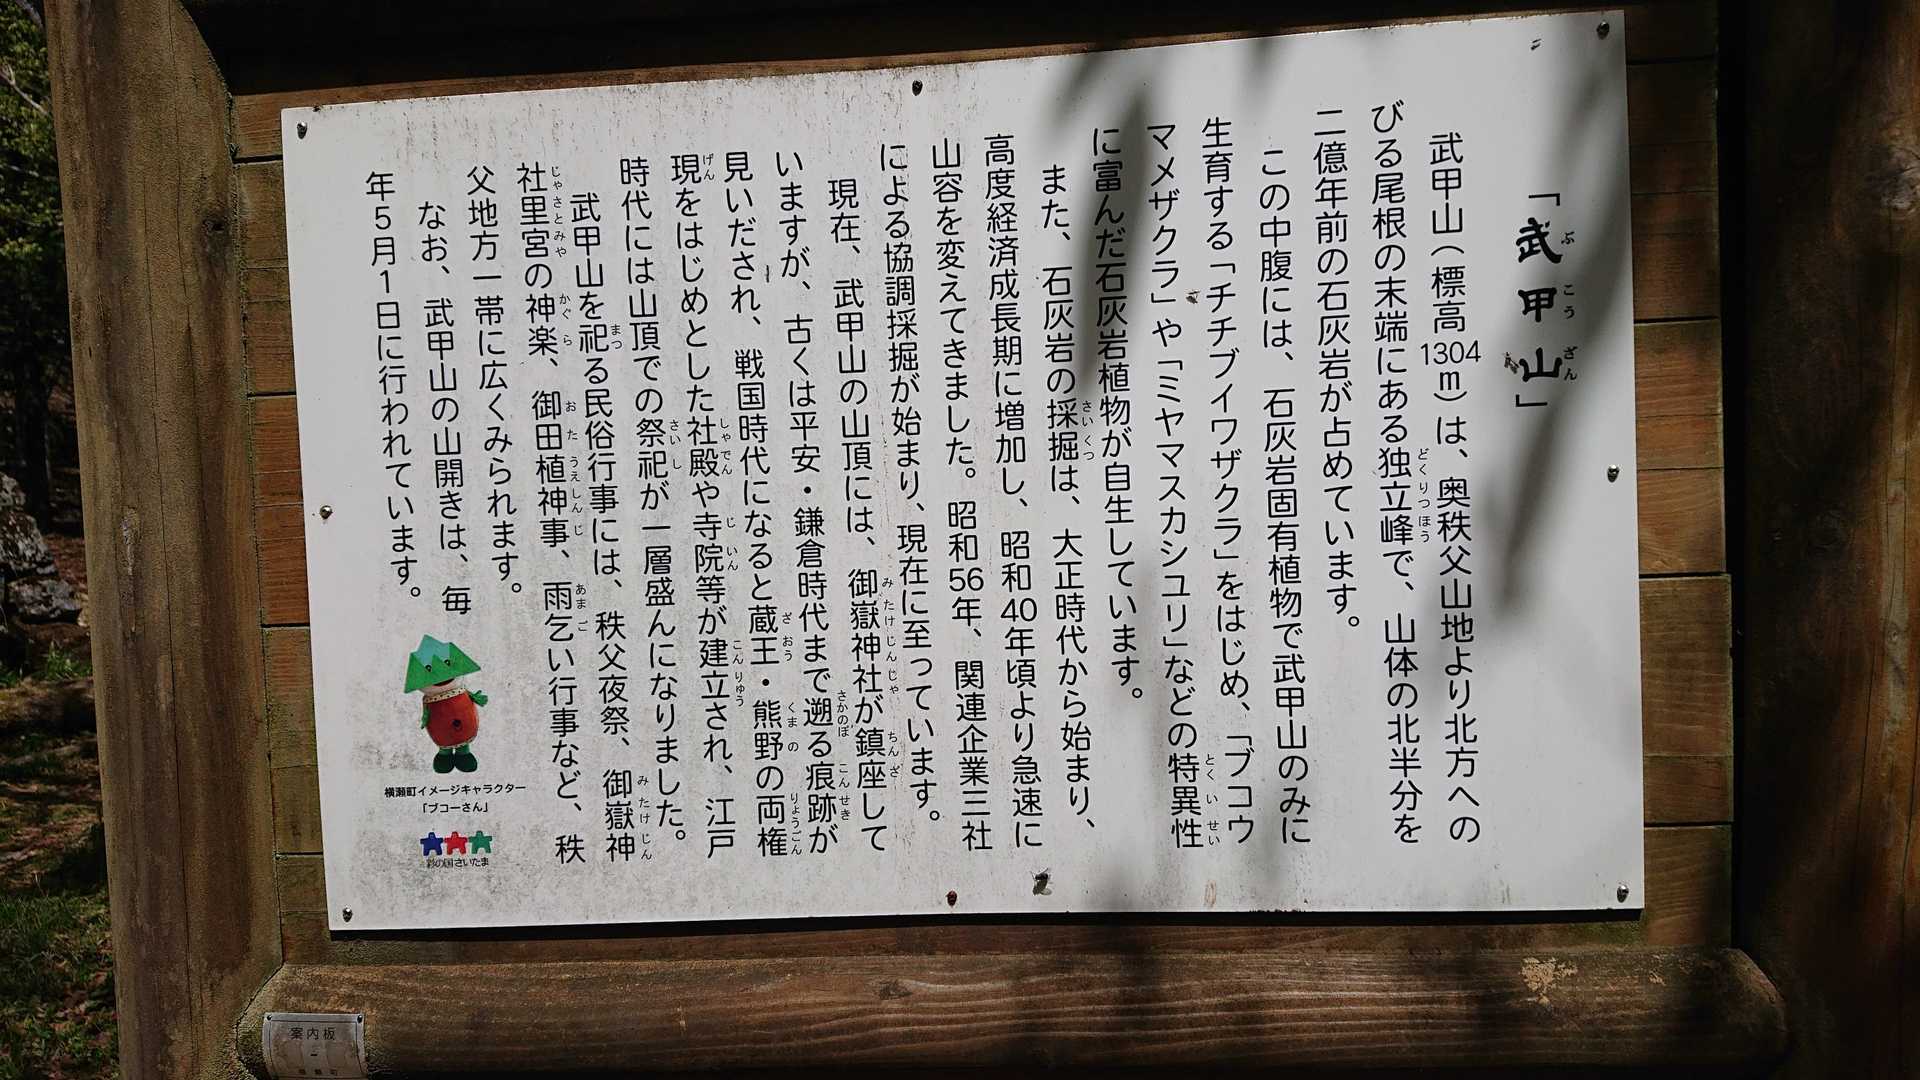 「武甲山」
武甲山（標高1304m）は、奥秩父山地より北方への
びる尾根の末端にある独立峰で、山体の北半分を
二億年前の石灰岩が占めています。
この中腹には、石灰岩固有植物で武甲山のみに
生育する「チチブイワザクラ」をはじめ、「ブコウ
マメザクラ」や「ミヤマスカシユリ」などの特異性
に富んだ石灰岩植物が自生しています。
また、石灰岩の採掘は、大正時代から始まり、
高度経済成長期に増加し、昭和40年頃より急速に
山容を変えてきました。昭和56年、関連企業三社
による協調採掘が始まり、現在に至っています。
現在、武甲山の山頂には、御嶽神社が鎮座して
いますが、古くは平安・鎌倉時代まで遡る痕跡が
見いだされ、戦国時代になると蔵王・熊野の両権
現をはじめとした社殿や寺院等が建立され、江戸
時代には山頂での祭祀が一層盛んになりました。
武甲山を祀る民俗行事には、秩父夜祭、御嶽神
社里宮の神楽、御田植神事、雨乞い行事など、秩
父地方一帯に広くみられます。
なお、武甲山の山開きは、毎
年5月1日に行われています。
横瀬町イメージキャラクター
「ブコーさん」
彩の国さいたま
案内板